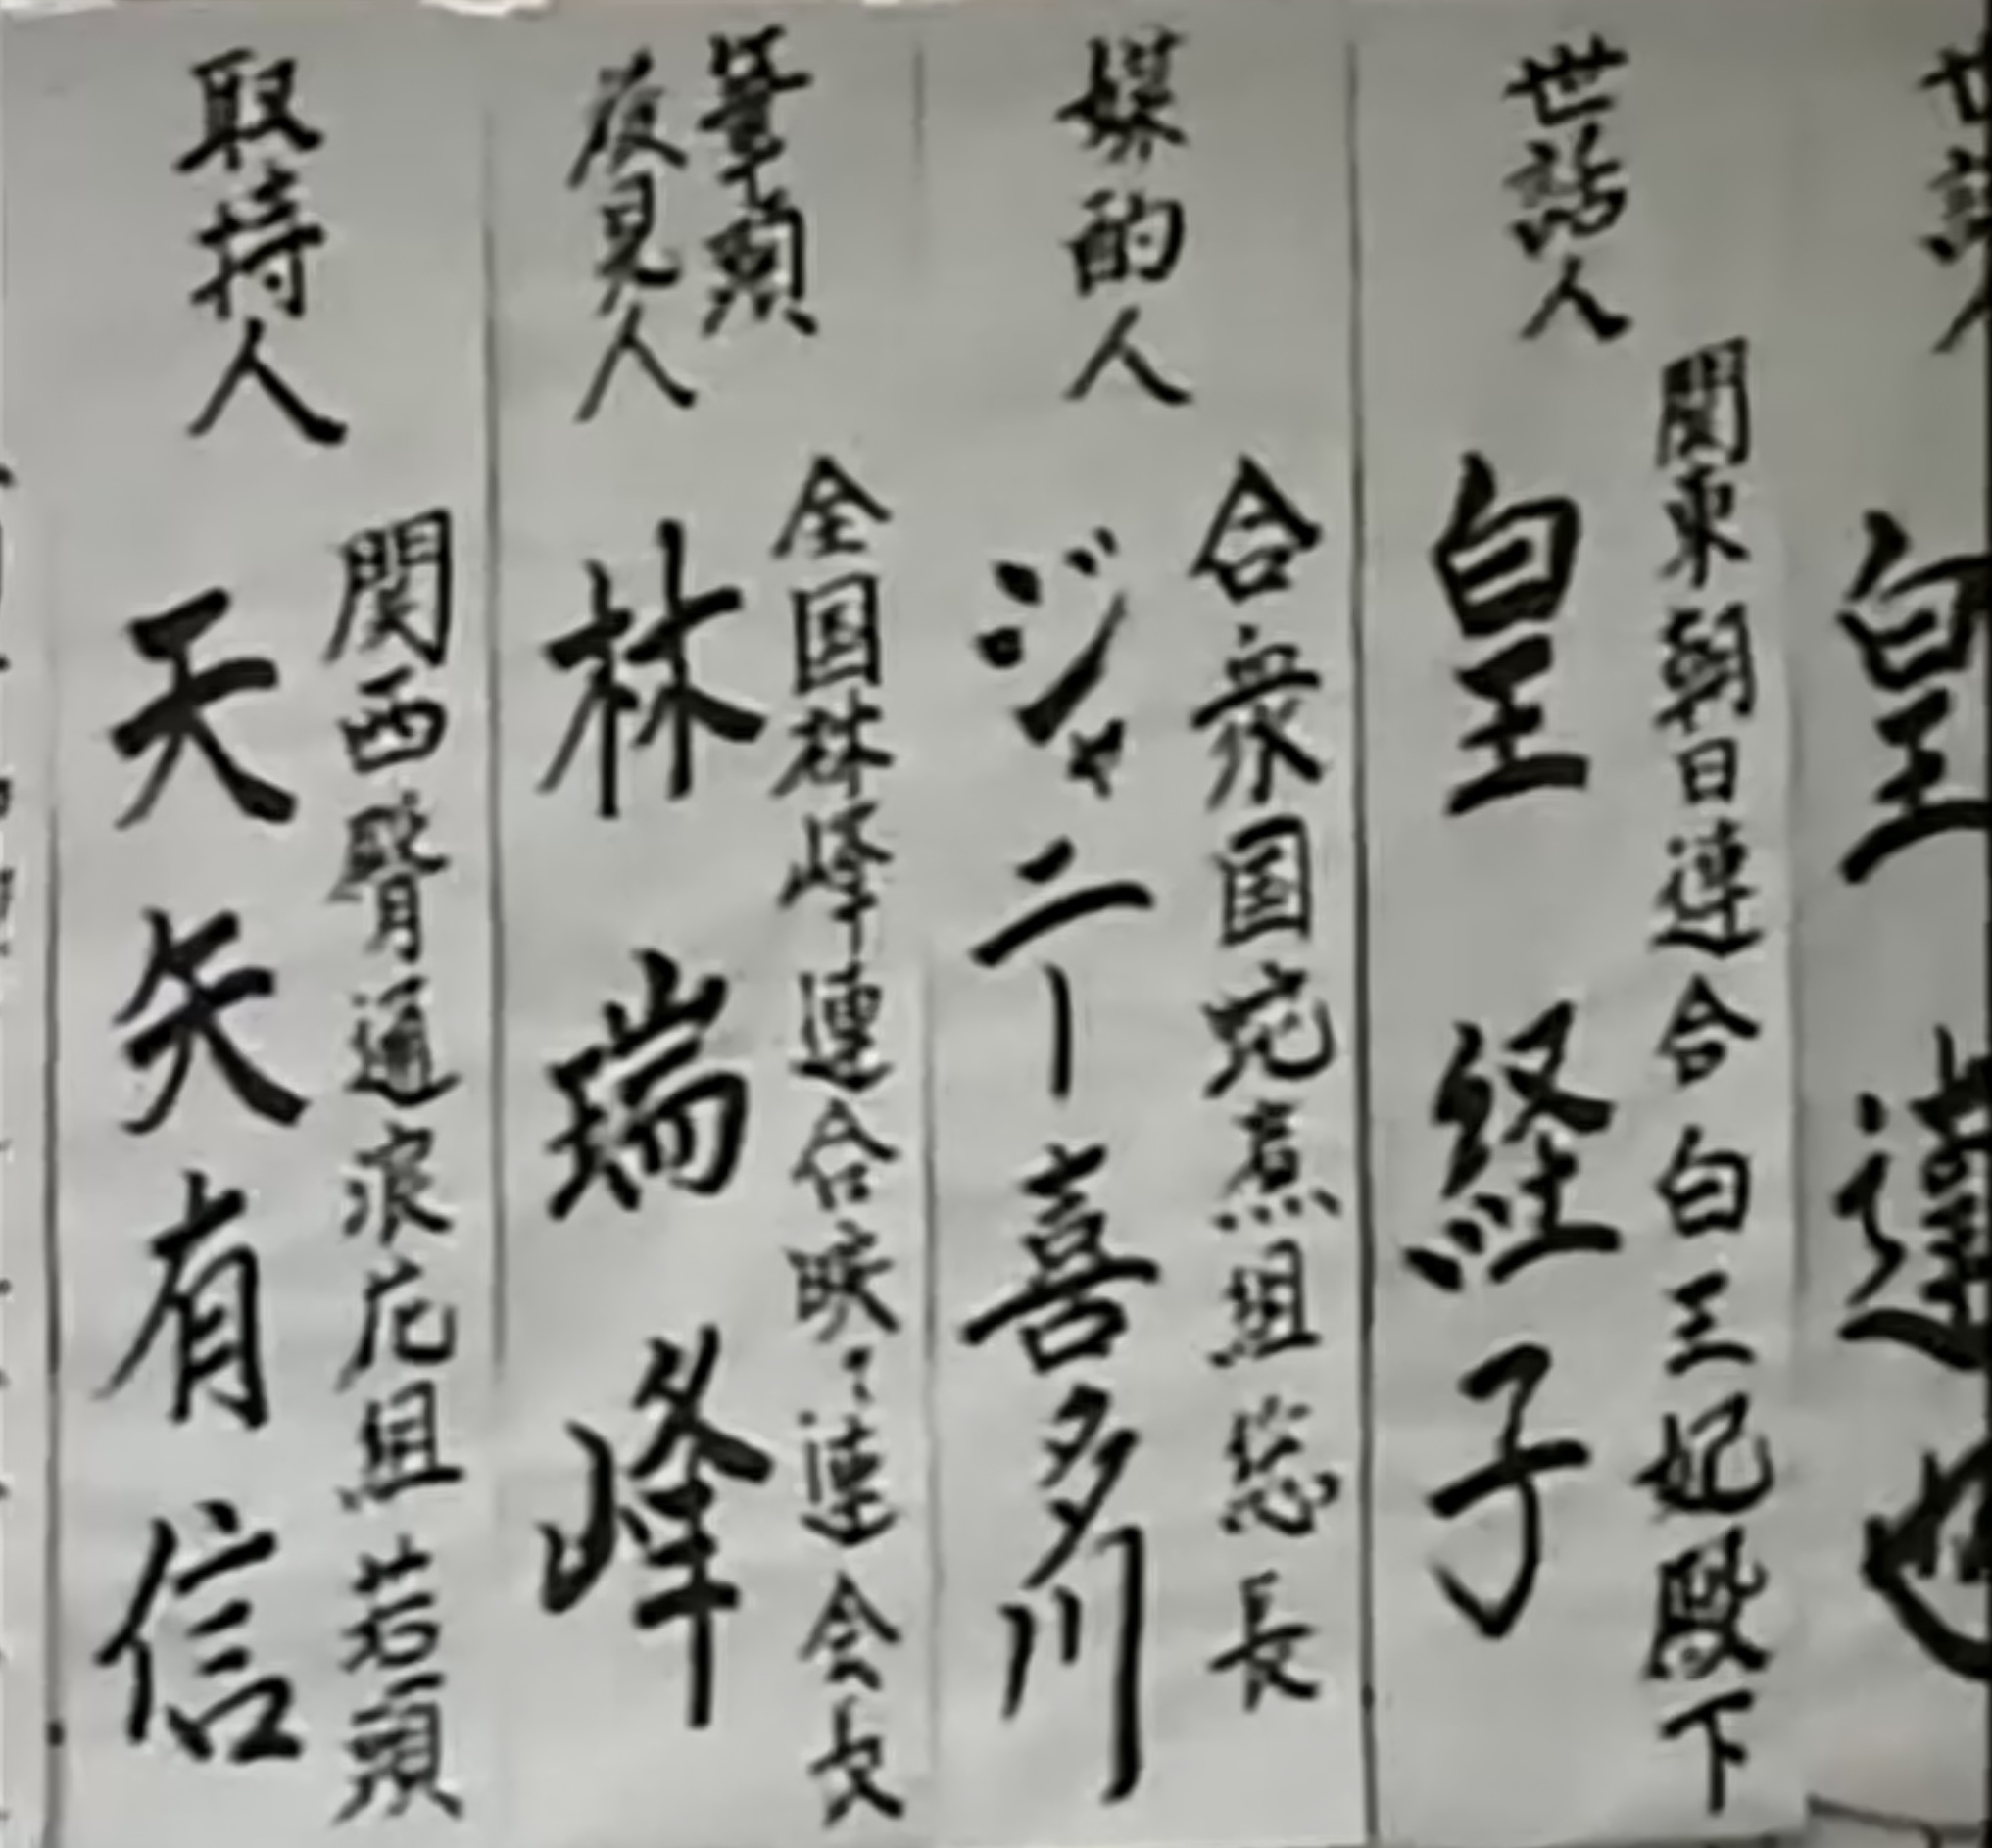 世話人
皇
世話人
関東朝日連合白王妃殿下
皇経子
媒酌人
合衆国 組総長
ジャニー喜多川
筆頭
後見人
全国林峰連合 連会長
林瑞峰
取持人
関西 通 組若頭
天矢有信